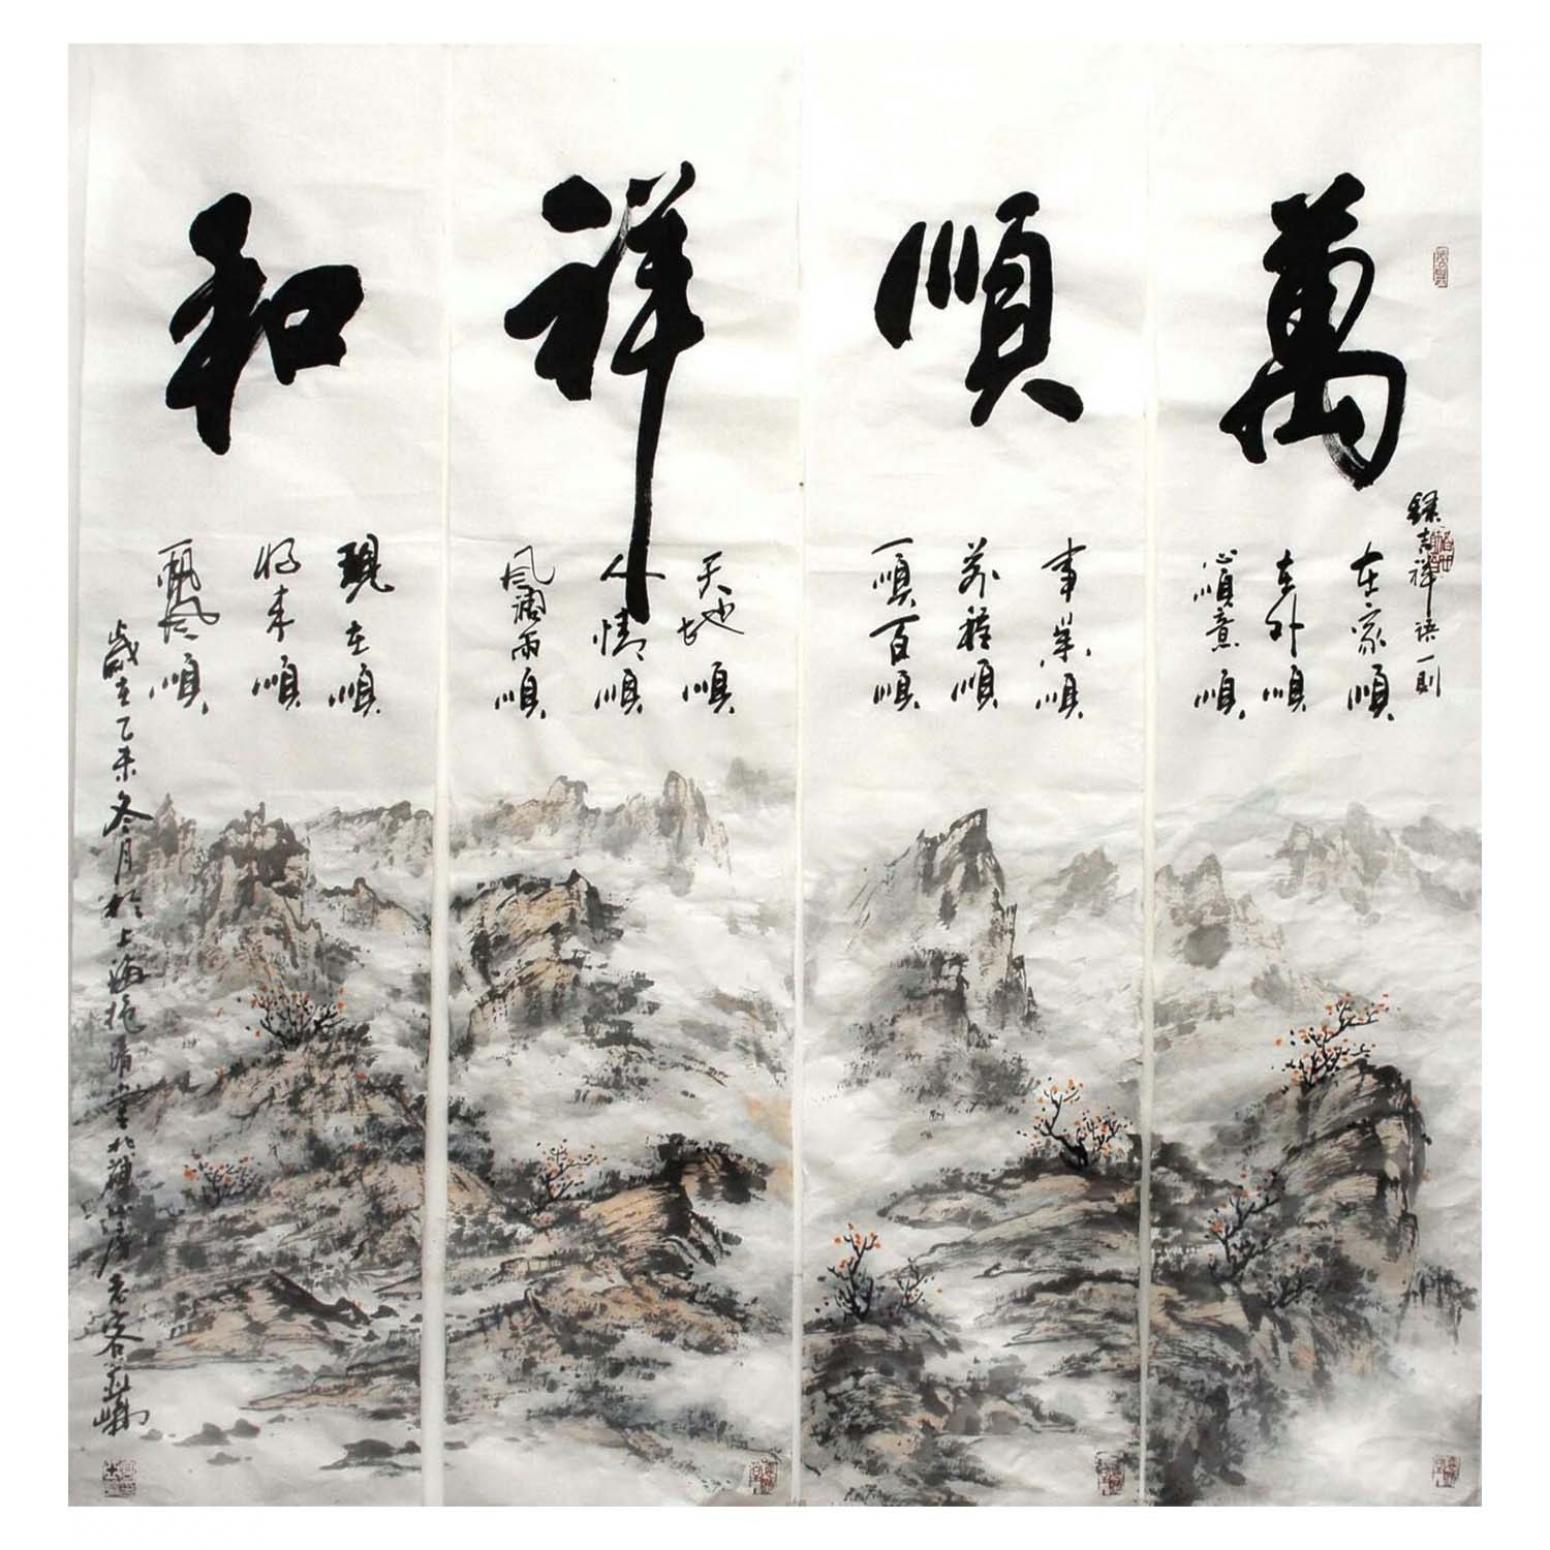 萬
錄吉祥語一則
在家順
在外順
心順意順
順
事業順
前程順
一順百順
祥
天地順
人情順
風調雨順
和
現在順
將來順
一帆風順
歲在乙未冬月於上海